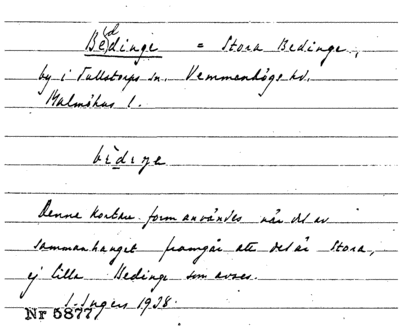 Be(d)dinge = Stora Bedinge,
by i Tullstorps sn. Vemmenhögs hd.
Malmöhus l.
bèdıŋe
Denna kortare form användes når det av
sammanhanget framgår att det är Stora,
ej Lilla Bedinge som avses.
I. Ingers 1938.
Nr 5877